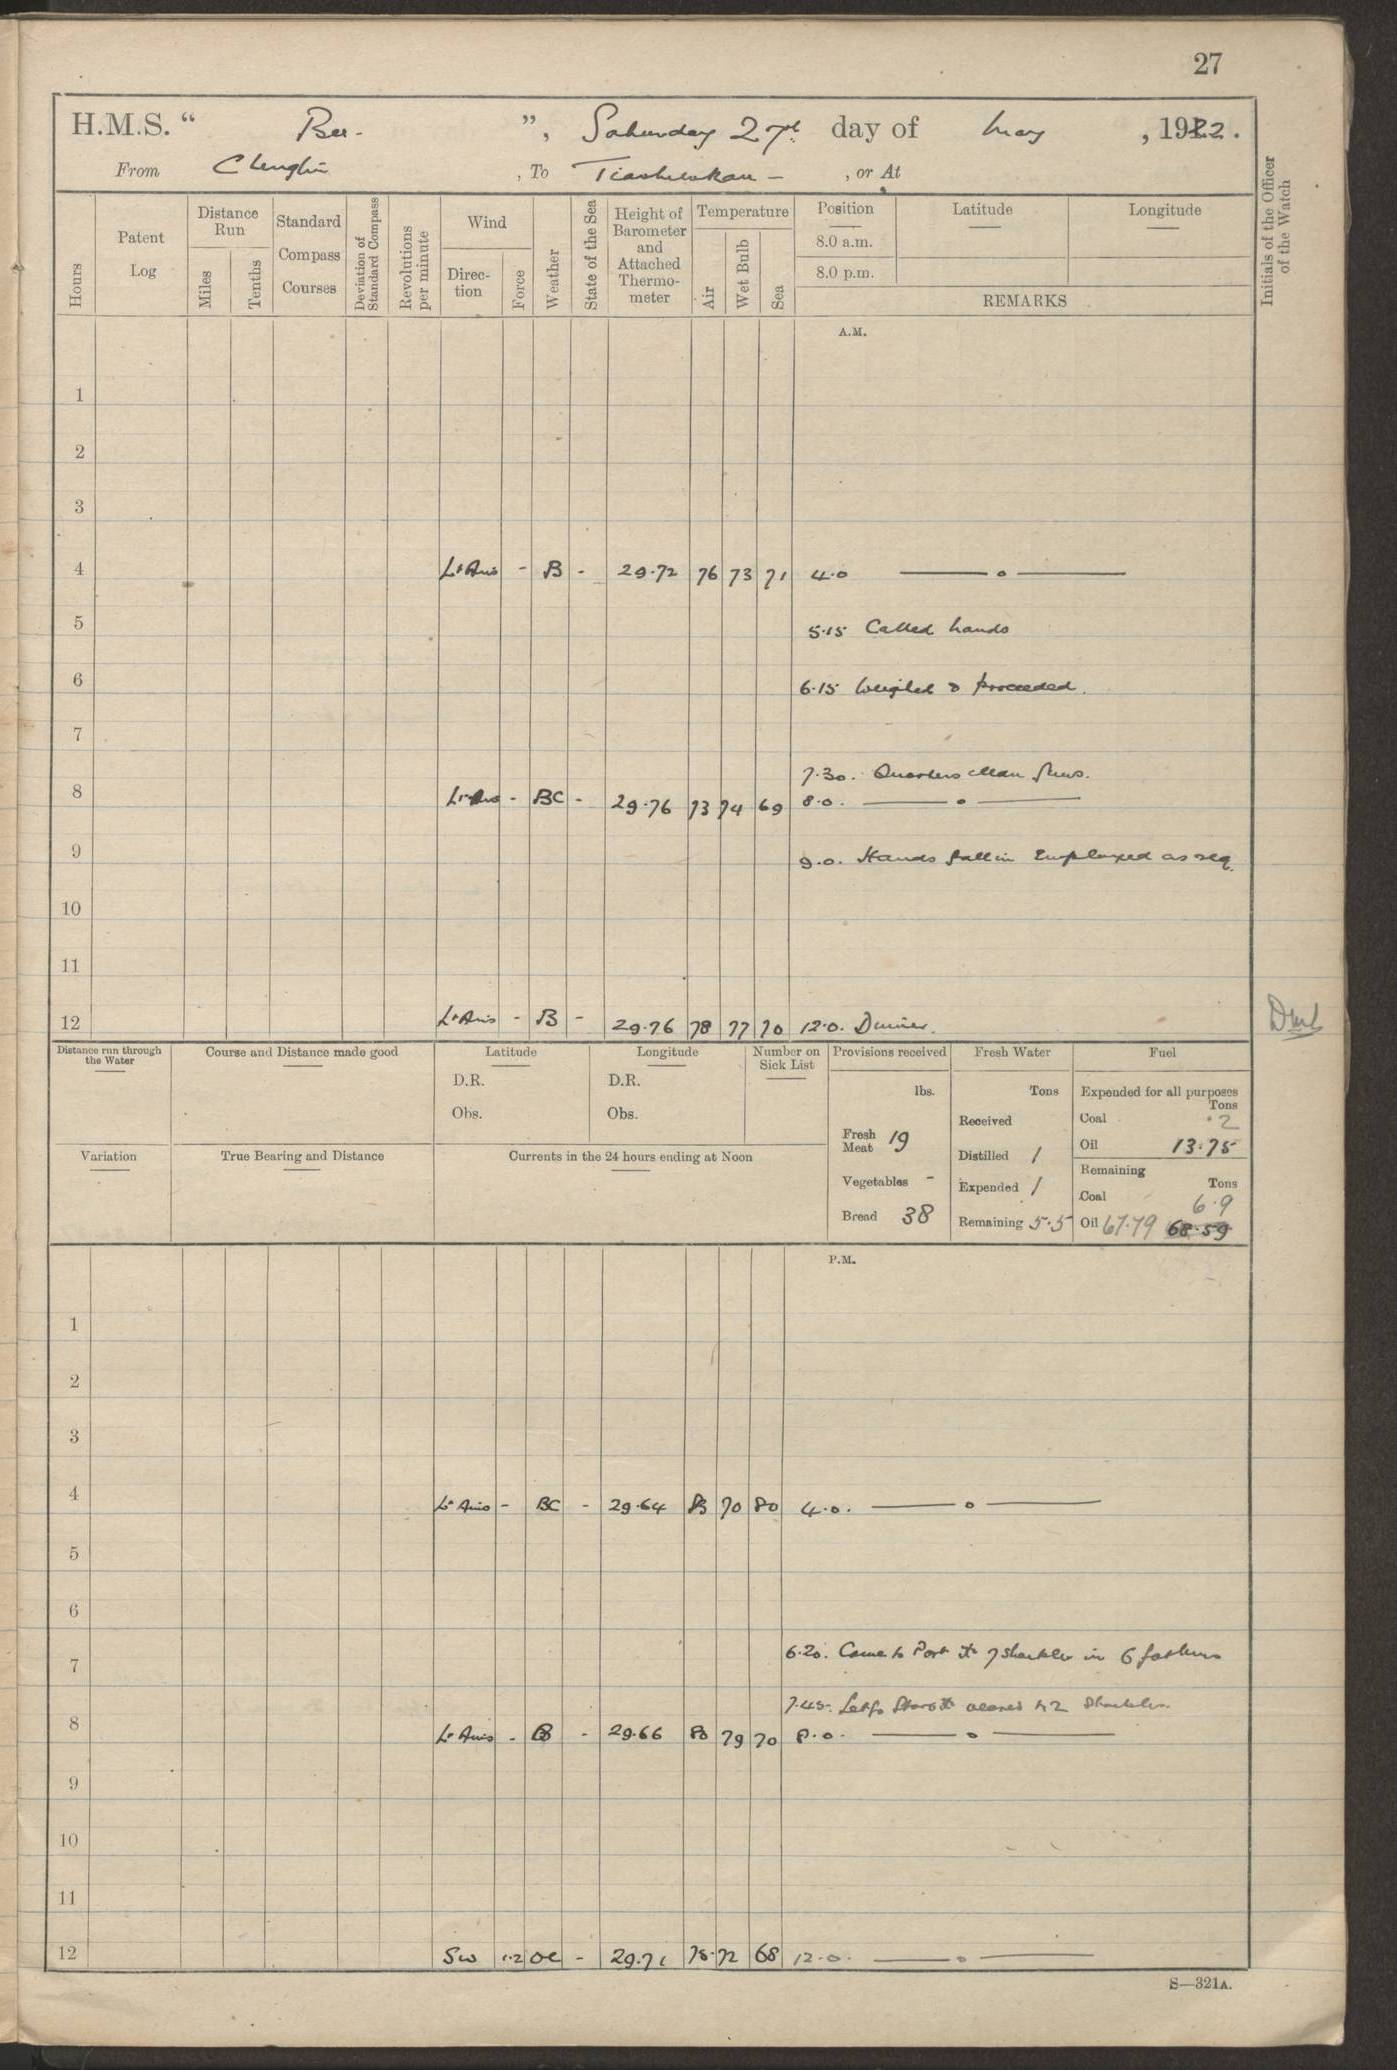 27
H.M.S. " Bee - ", Saturday 27th day of May , 1922.
From Chenglin , To - , or At
Hours
Patent Log
Distance Run
Miles
Tenths
Standard Compass Courses
Deviation of Standard Compass
Revolutions per minute
Wind
Direction
Force
Weather
State of the Sea
Height of Barometer and Attached Thermometer
Temperature
Air
Wet Bulb
Sea
Position
8.0 a.m.
8.0 p.m.
Latitude
Longitude
REMARKS
Initials of the Officer of the Watch
A.M.
1
2
3
4 Lt Airs - B - 29.72 76 73 71 4.0 —— o ——
5 5.15 Called hands
6 6.15 Weighed & proceeded.
7
7.30. Quarters clean guns.
8 Lt Airs - BC - 29.76 73 74 69 8.0. —— o ——
9 9.0. Hands fall in Employed as req.
10
11
12 Lt Airs - B - 29.76 78 77 70 12.0. Dinner.
Distance run through the Water
Course and Distance made good
Latitude
D.R.
Obs.
Longitude
D.R.
Obs.
Number on Sick List
Variation
True Bearing and Distance
Currents in the 24 hours ending at Noon
Provisions received
lbs.
Fresh Meat 19
Vegetables -
Bread 38
Fresh Water
Tons
Received
Distilled 1
Expended 1
Remaining 5.5
Fuel
Expended for all purposes
Tons
Coal .2
Oil 13.75
Remaining
Tons
Coal 6.9
Oil 67.79 68.59
P.M.
1
2
3
4 Lt Airs - BC - 29.64 83 70 80 4.0. —— o ——
5
6
6.20. Came to Port 7 shackles in 6 fathoms
7
7.45. Let go Starbd veered to 2 Shackles
8 Lt Airs - B - 29.66 80 79 70 8.0. —— o ——
9
10
11
12 SW 1.2 OC - 29.71 75 72 68 12.0. —— o ——
S—321A.